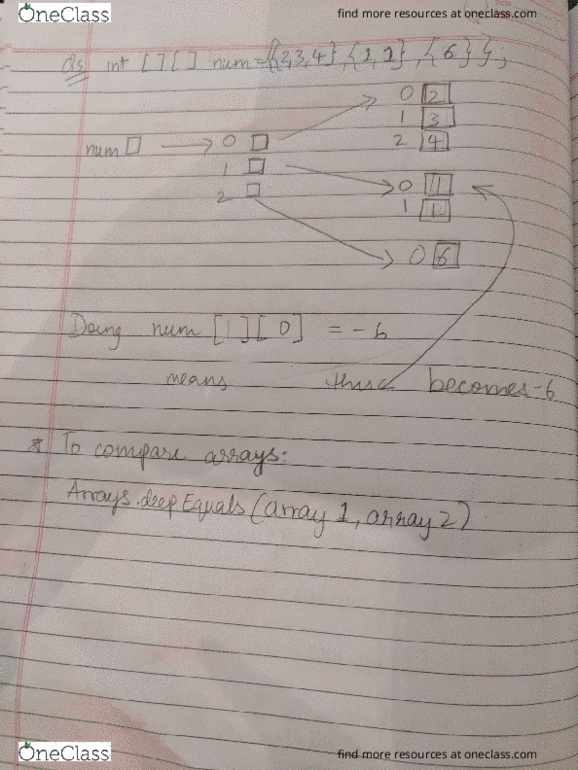 OneClass
find more resources at oneclass.com
Qs int [][] num={{2,3,4},{1,1},{6}};
0 2
1 3
num 0 2 4
1 0 1
2 1 1
0 6
Doing num [1][0] = -6
means this becomes -6
* To compare arrays:
Arrays.deepEquals(array 1, array 2)
OneClass
find more resources at oneclass.com